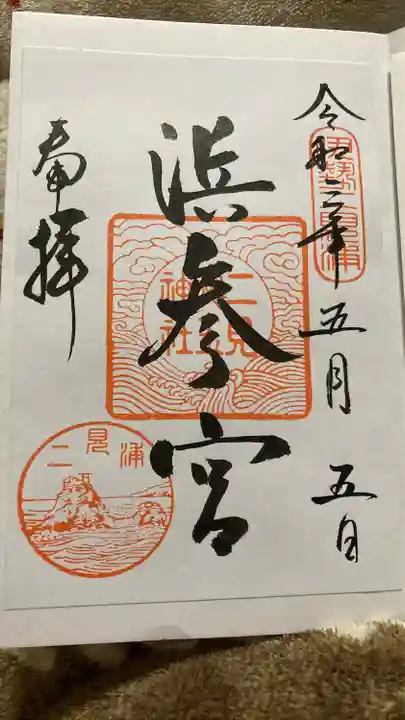 令和三年五月五日
伊勢二見浦
浜参宮
二見
神社
奉拝
二見浦